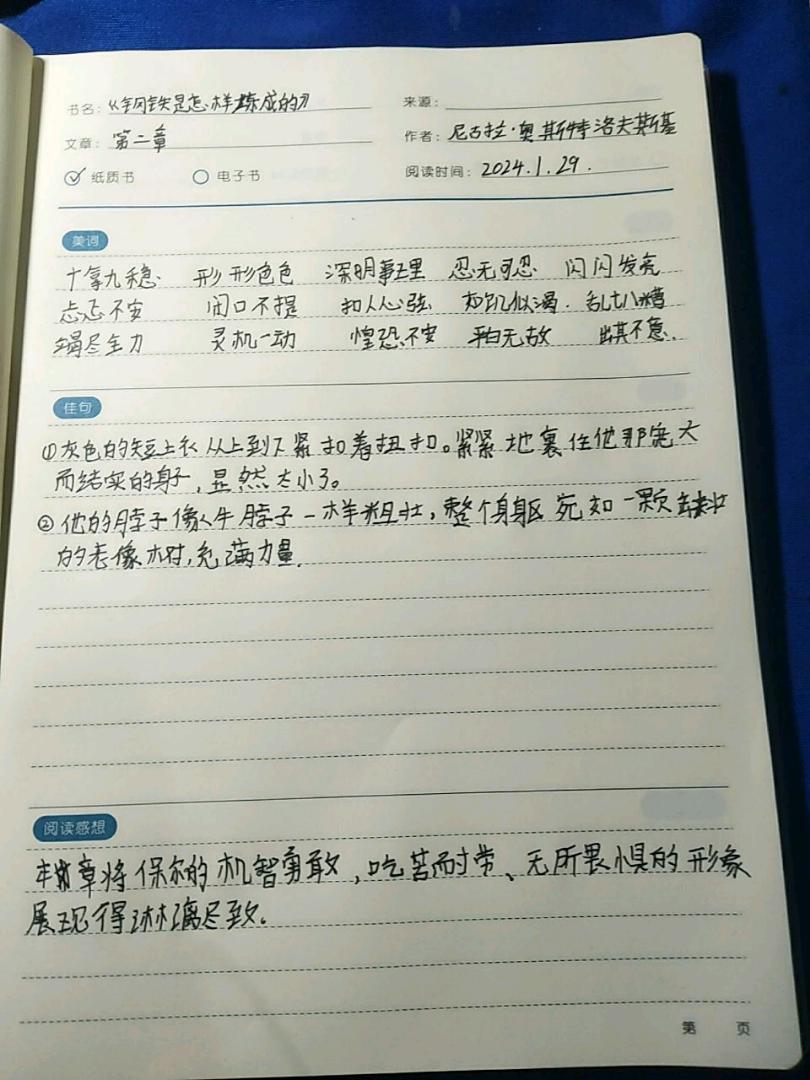 书名：《钢铁是怎样炼成的》 来源：
文章：第二章 作者：尼古拉·奥斯特洛夫斯基
纸质书 电子书 阅读时间：2024.1.29.
美词
十拿九稳 形形色色 深明事理 忍无可忍 闪闪发亮
忐忑不安 闭口不提 扣人心弦 如饥似渴 乱七八糟
竭尽全力 灵机一动 惶恐不安 平白无故 出其不意.
佳句
①灰色的短上衣从上到下紧扣着扭扣。紧紧地裹住他那宽大
而结实的身子，显然太小了。
②他的脖子像牛脖子一样粗壮，整个身躯宛如一颗粗壮
的老像树，充满力量.
阅读感想
本章将保尔的机智勇敢，吃苦耐劳、无所畏惧的形象
展现得淋漓尽致。
第 页